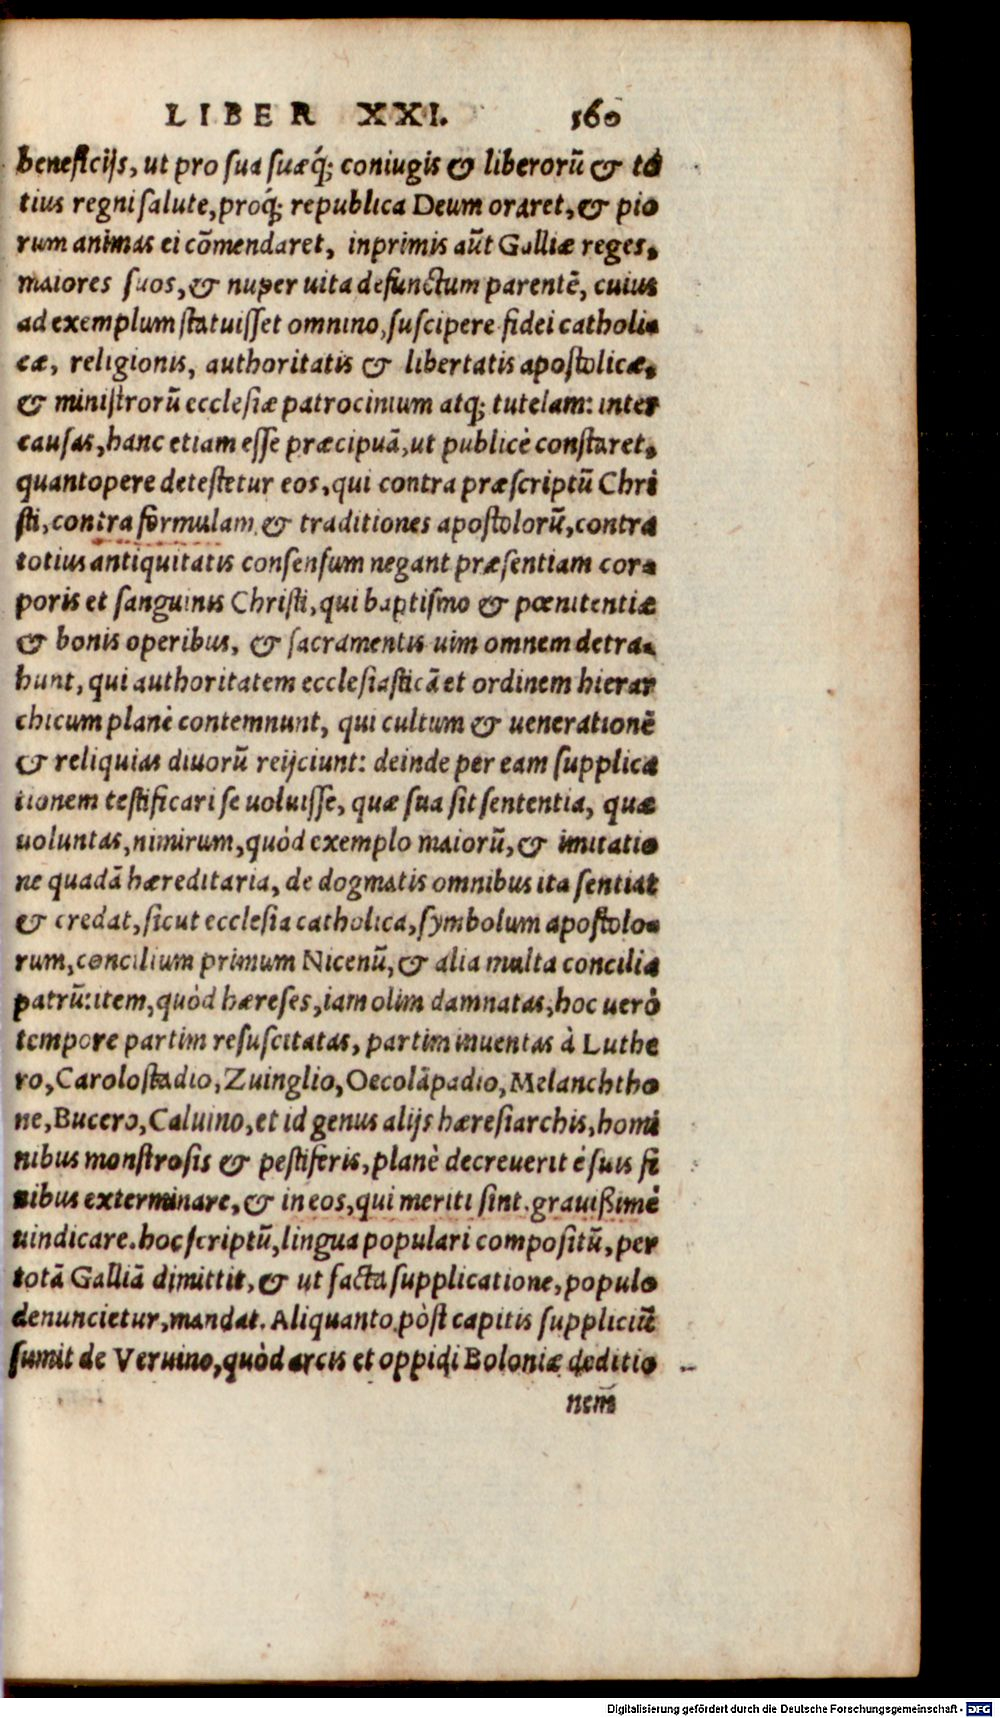 LIBER XXI. 160
beneficijs, ut pro sua suæq́; coniugis & liberorũ & to
tius regni salute, proq́; republica Deum oraret, & pio
rum animas ei cõmendaret, inprimis aũt Galliæ reges,
maiores suos, & nuper uita defunctum parentẽ, cuius
ad exemplum statuisset omnino, suscipere fidei catholi-
cæ, religionis, authoritatis & libertatis apostolicæ,
& ministrorũ ecclesiæ patrocinium atq; tutelam: inter
causas, hanc etiam esse præcipuã, ut publicè constaret,
quantopere detestetur eos, qui contra præscriptũ Chri
sti, contra formulam & traditiones apostolorũ, contra
totius antiquitatis consensum negant præsentiam cor-
poris et sanguinis Christi, qui baptismo & pœnitentiæ
& bonis operibus, & sacramentis uim omnem detra-
hunt, qui authoritatem ecclesiasticã et ordinem hierar
chicum planè contemnunt, qui cultum & uenerationẽ
& reliquias diuorũ reijciunt: deinde per eam supplica
tionem testificari se uoluisse, quæ sua sit sententia, quæ
uoluntas, nimirum, quòd exemplo maiorũ, & imitatio
ne quadã hæreditaria, de dogmatis omnibus ita sentiat
& credat, sicut ecclesia catholica, symbolum apostolo-
rum, concilium primum Nicenũ, & alia multa concilia
patrũ: item, quòd hæreses, iam olim damnatas, hoc uerò
tempore partim resuscitatas, partim inuentas à Luthe
ro, Carolostadio, Zuinglio, Oecolãpadio, Melanchtho
ne, Bucero, Caluino, et id genus alijs hæresiarchis, homi
nibus monstrosis & pestiferis, planè decreuerit è suis fi
nibus exterminare, & in eos, qui meriti sint. grauißimè
uindicare. hoc scriptũ, lingua populari compositũ, per
totã Galliã dimittit, & ut facta supplicatione, populo
denuncietur, mandat. Aliquanto pòst capitis suppliciũ
sumit de Veruino, quòd arcis et oppidi Boloniæ deditio
nem
Digitalisierung gefördert durch die Deutsche Forschungsgemeinschaft - DFG